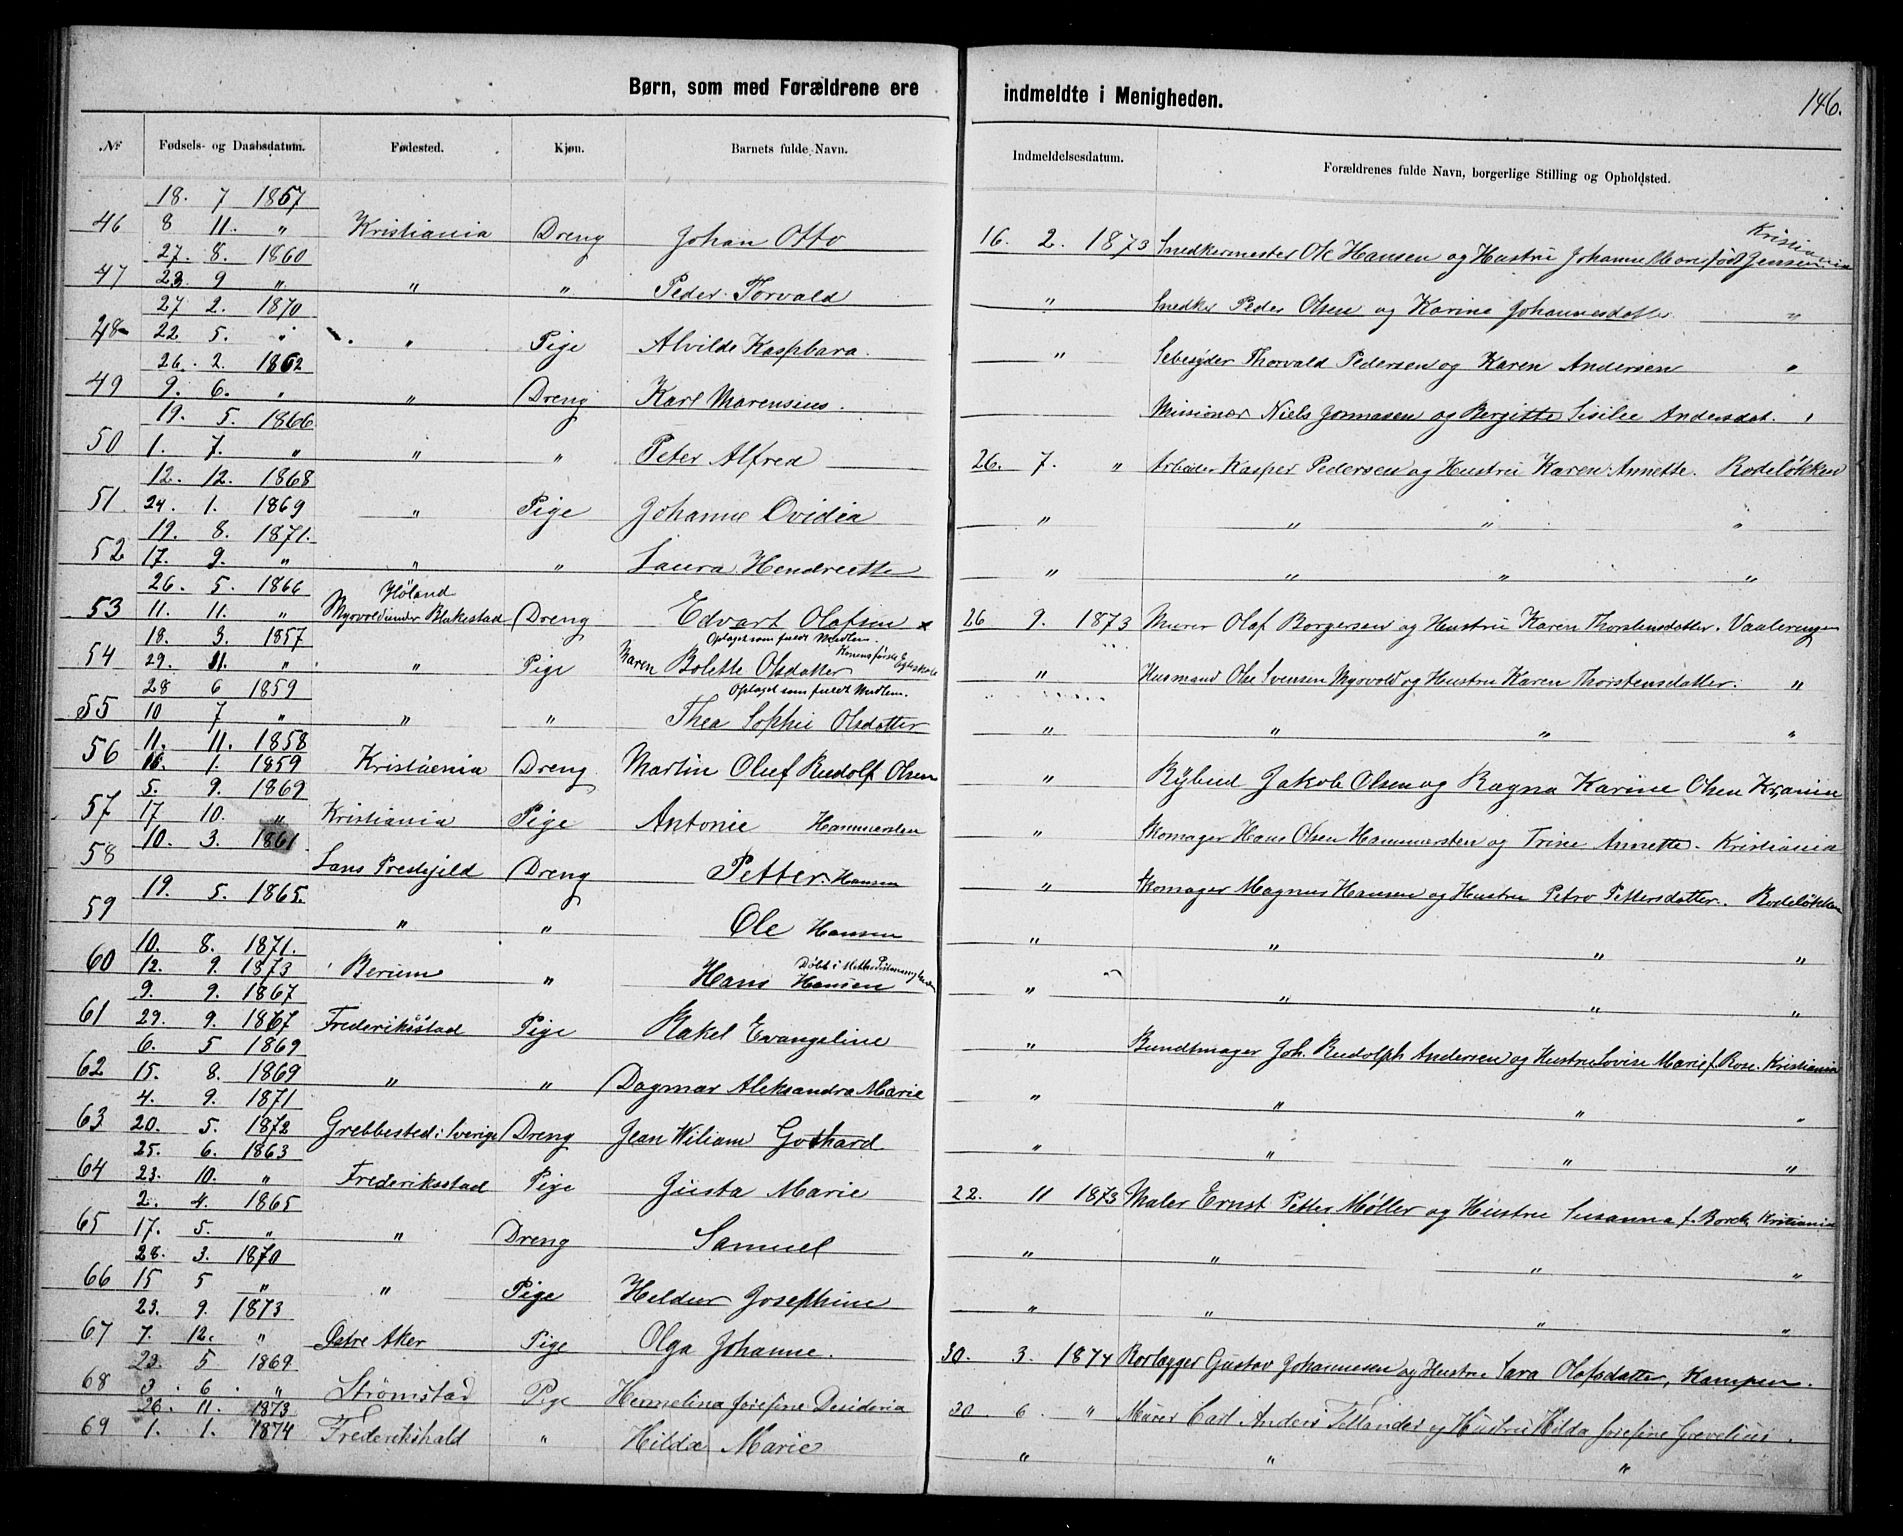 Børn, som med Forældrene ere indmeldte i Menigheden.
146.
№ Fødsels- og Daabsdatum. Fødested. Kjøn. Barnets fulde Navn. Indmeldelsesdatum. Forældrenes fulde Navn, borgerlige Stilling og Opholdsted.
18. 7 1867
46 8 11. " Kristiania Dreng Johan Otto 16. 2. 1873 Snedkermester Ole Hansen og Hustru Johanne Marie født Jensen Kristiania
27. 8. 1860
47 23. 9 " " " Peder Torvald " Snedker Peder Olsen og Karine Johannesdatter "
27 2. 1870
48 22 5. " " Pige Alvilde Kaspbara. " Sebesyder Thorvald Pedersen og Karen Andersen "
26. 2. 1862
49 9. 6. " " Dreng Karl Marensius. Missionær Niels og Bergitte Sisilie Andersdat. "
19. 5. 1866
50 1. 7. " " " Peter Alfred 26. 7. " Arbeider Kasper Pedersen og Hustru Karen Annette. Rodeløkken
12. 12. 1868
51. 24. 1. 1869 " Pige Johanne Ovidia " " " "
19. 8. 1871.
52 17. 9. " " " Laura Hendriette " " " "
26. 5. 1866 Høland
53 11. 11. " Myrvold under Blakestad Dreng Edvart Olafsen x 26 9. 1873 Murer Olaf Borgersen og Hustru Karen Thorstensdatter. Vaalerengen
18. 3. 1857 Optaget som fuldt Medlem.
54 29. 11. " " Pige Maren Bolette Olsdatter Konens første Egteskab " Husmand Ole Svensen Myrvold og Hustru Karen Thorstensdatter. "
28 6 1859 Optaget som fuldt Medlem.
55 10 7 " " " Thea Sophie Olsdatter " " " "
11. 11. 1858
56 16. 1. 1859 Kristiania Dreng Martin Oluf Rudolf Olsen " Bybud Jakob Olsen og Ragna Karine Olsen Kr.ania
5. 9. 1869
57 17 10. " Kristiania Pige Antonie Hammersten " Skomager Hans Olsen Hammersten og Trine Annette. Kristiania
10. 3. 1861
58 Lans Prestejeld Dreng Petter. Hansen " Skomager Magnus Hansen og Hustru Petro Pettersdatter. Rodeløkken
19. 5. 1865.
59 " " Ole Hansen " " " "
10. 8. 1871.
60 12. 9. 1873 Berum " Hans Hansen Døbt i " " " "
9. 9. 1867
61 29. 9. 1867 Frederiksstad Pige Rakel Evangeline " Bundtmager Joh. Rudolph Andersen og Hustru Lovise Marie f. Rose. Kristiania
6. 5 1869
62 15. 8. 1869 " " Dagmar Aleksandra Marie " " " "
4. 9. 1871
63 20. 5. 1872 Grebbested i Sverige Dreng Jean Wiliam Gothard " " " "
25. 6. 1863
64 23. 10. " Frederiksstad Pige Gusta Marie 22. 11 1873 Maler Ernst Petter Møller og Hustru Susanna f. Borck, Kristiania
2. 4. 1865
65 17. 5. " " Dreng Samuel " " " "
28. 3. 1870
66 15 5 " " Pige Heldur Josephine " " " "
23. 9. 1873
67 7. 12. " Østre Aker Pige Olga Johanne. 30. 3. 1874 Rorlægger Gustav Johannesen og Hustru Sara Olafsdatter, Kampen.
23. 5 1869.
68 3. 6. " Strømstad Pige Hermelina Josefine Desideria 30 6 " Murer Carl Anders Tellander og Hustru Hilda Josefine Grevelius.
26. 11. 1873
69 1. 1. 1874 Frederikshald " Hilda Marie " " "